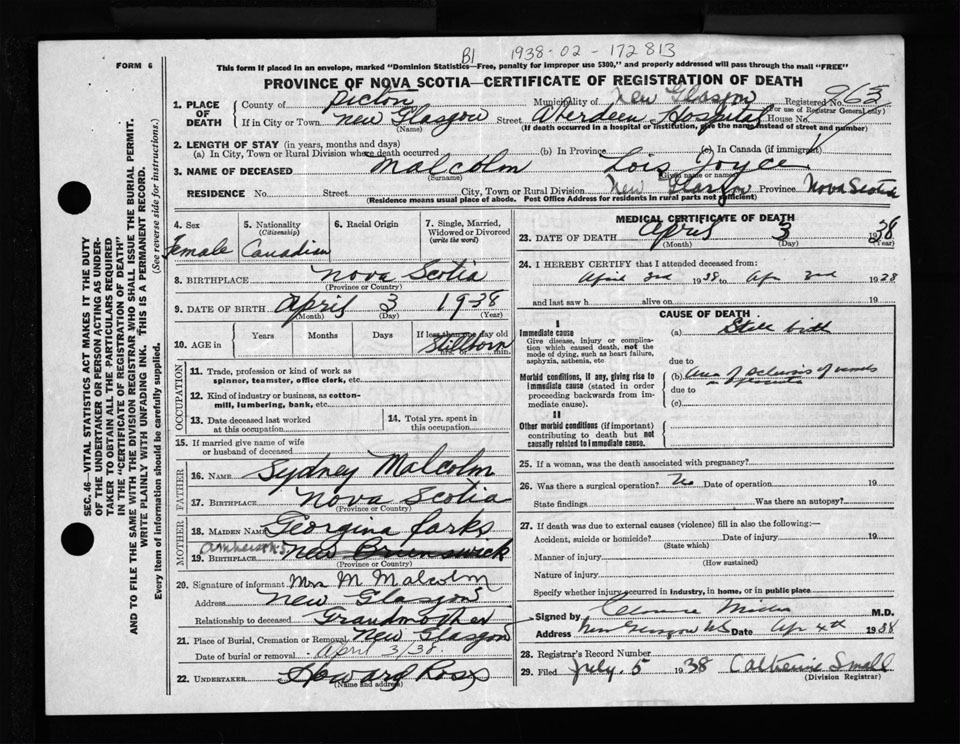 B1 1938-02-172813
FORM 6
This form if placed in an envelope, marked "Dominion Statistics—Free, penalty for improper use $300," and properly addressed will pass through the mail "FREE"
PROVINCE OF NOVA SCOTIA—CERTIFICATE OF REGISTRATION OF DEATH
1. PLACE OF DEATH County of Pictou Municipality of New Glasgow Registered No. 963
(For use of Registrar General only)
If in City or Town New Glasgow Street Aberdeen Hospital House No.
(Name) (If death occurred in a hospital or institution, give the name instead of street and number)
2. LENGTH OF STAY (in years, months and days)
(a) In City, Town or Rural Division where death occurred (b) In Province (c) In Canada (if immigrant)
3. NAME OF DECEASED Malcolm Lois Joyce
(Surname) (Given name or names)
RESIDENCE No. Street City, Town or Rural Division New Glasgow Province Nova Scotia
(Residence means usual place of abode. Post Office Address for residents in rural parts not sufficient)
SEC. 46—VITAL STATISTICS ACT MAKES IT THE DUTY
OF THE UNDERTAKER OR PERSON ACTING AS UNDER-
TAKER TO OBTAIN ALL THE PARTICULARS REQUIRED
IN THE "CERTIFICATE OF REGISTRATION OF DEATH"
AND TO FILE THE SAME WITH THE DIVISION REGISTRAR WHO SHALL ISSUE THE BURIAL PERMIT.
WRITE PLAINLY WITH UNFADING INK. THIS IS A PERMANENT RECORD.
Every item of information should be carefully supplied. (See reverse side for instructions.)
4. Sex 5. Nationality 6. Racial Origin 7. Single, Married,
(Citizenship) Widowed or Divorced
Female Canadian (write the word)
8. BIRTHPLACE Nova Scotia
(Province or Country)
9. DATE OF BIRTH April 3 1938
(Month) (Day) (Year)
10. AGE in Years Months Days If less than one day old
Stillborn
hrs. or min.
OCCUPATION
11. Trade, profession or kind of work as
spinner, teamster, office clerk, etc.
12. Kind of industry or business, as cotton-
mill, lumbering, bank, etc.
13. Date deceased last worked
at this occupation
14. Total yrs. spent in
this occupation
15. If married give name of wife
or husband of deceased
FATHER
16. NAME Sydney Malcolm
17. BIRTHPLACE Nova Scotia
(Province or Country)
MOTHER
18. MAIDEN NAME Georgina
Amherst N.S.
19. BIRTHPLACE New Brunswick
(Province or Country)
20. Signature of informant Mrs M Malcolm
Address New Glasgow
Relationship to deceased Grandmother
21. Place of Burial, Cremation or Removal New Glasgow
Date of burial or removal April 3/38
22. UNDERTAKER Howard Ross
(Name and address)
MEDICAL CERTIFICATE OF DEATH
23. DATE OF DEATH April 3 1938
(Month) (Day) (Year)
24. I HEREBY CERTIFY that I attended deceased from:
April 2nd 1938 to Apr 2nd 1938
and last saw h alive on 19
CAUSE OF DEATH
I
Immediate cause (a) Still birth
Give disease, injury or complica-
tion which caused death, not the
mode of dying, such as heart failure,
asphyxia, asthenia, etc
due to
Morbid conditions, if any, giving rise to (b)
immediate cause (stated in order due to
proceeding backwards from im-
mediate cause). (c)
II
Other morbid conditions (if important)
contributing to death but not
causally related to immediate cause.
25. If a woman, was the death associated with pregnancy?
26. Was there a surgical operation? No Date of operation 19
State findings Was there an autopsy?
27. If death was due to external causes (violence) fill in also the following:—
Accident, suicide or homicide? Date of injury 19
(State which)
Manner of injury
(How sustained)
Nature of injury
Specify whether injury occurred in industry, in home, or in public place
Signed by Clarence Miller M.D.
Address New Glasgow NS Date Apr 4th 1938
28. Registrar's Record Number
29. Filed July 5 1938 Catherine Small
(Division Registrar)